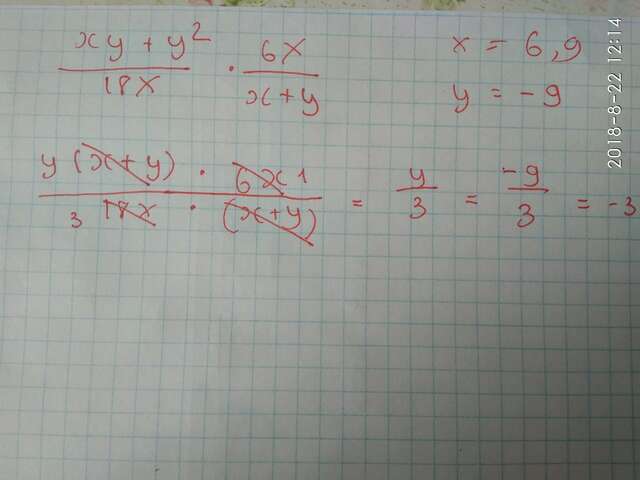 xy + y² / 18x · 6x / x+y    x = 6,9
y = -9
y (x+y) · 6x 1 / 3 18x · (x+y) = y / 3 = -9 / 3 = -3
2018-8-22 12:14